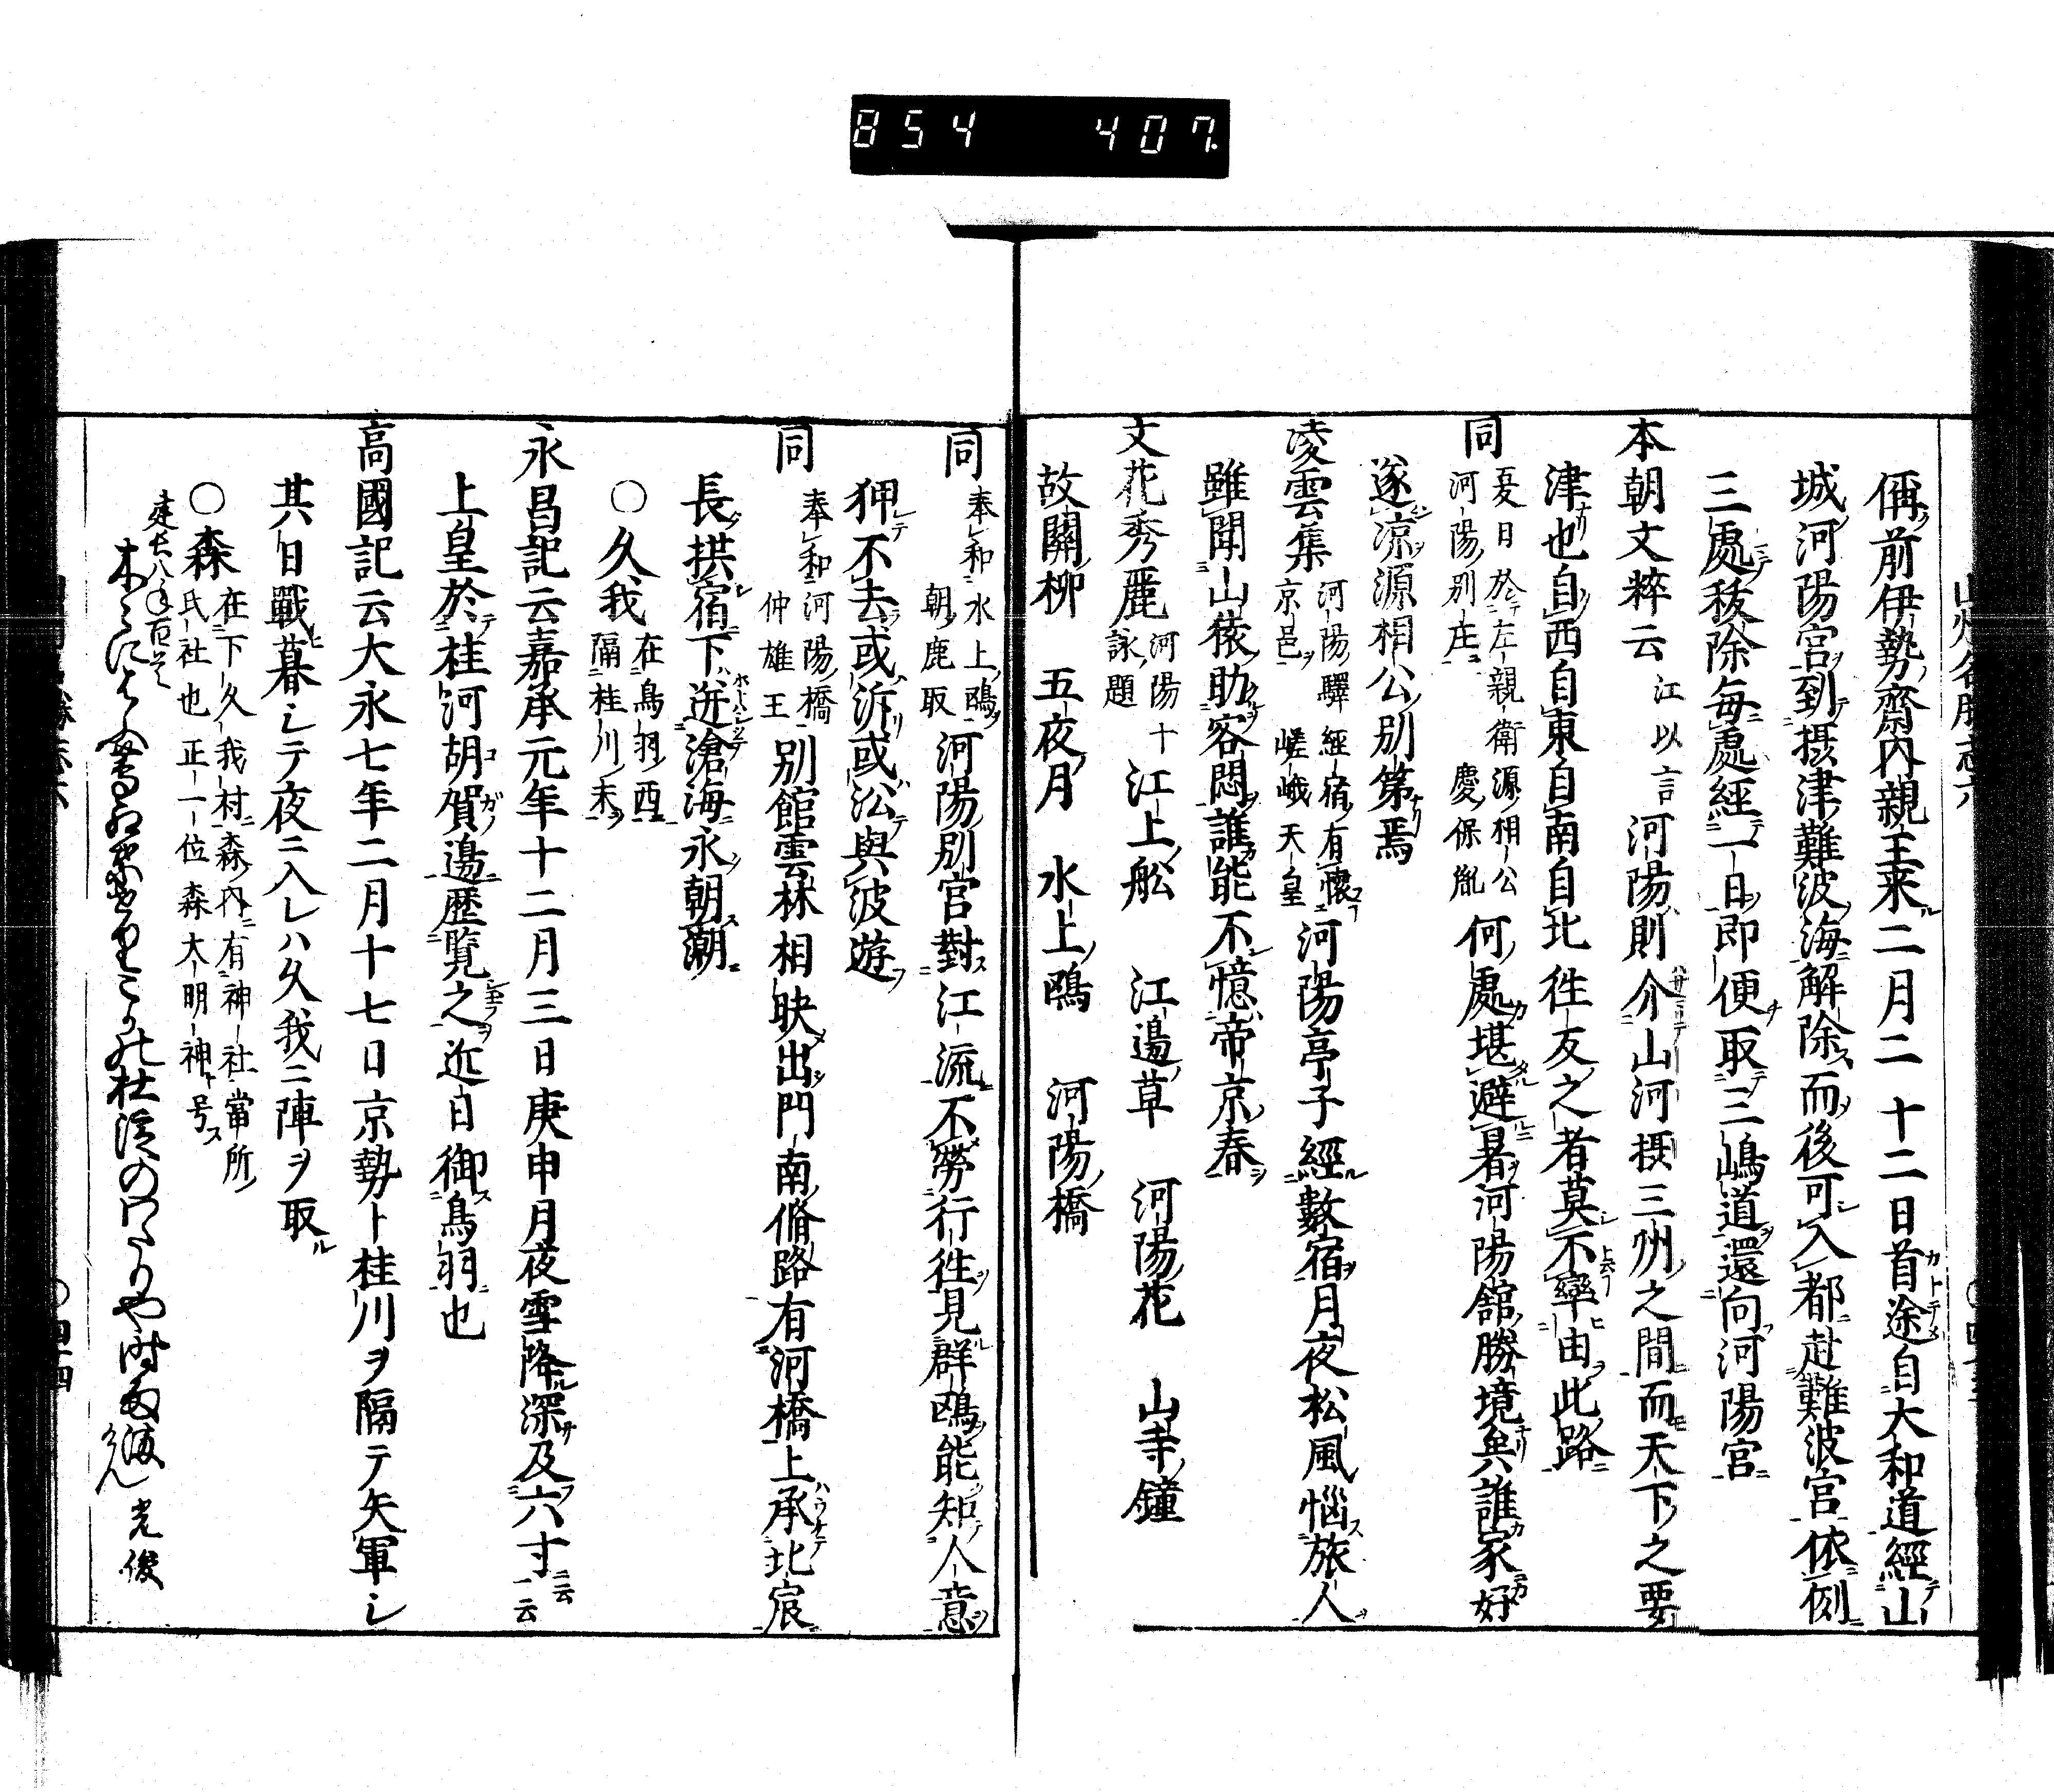 854 407
偁前伊勢齋內親王来二月二十二日首途自大和道經山
城河陽宮到摂津難波海解除而後可入都赴難波宮依例
三處秡除每處經一日即便取三嶋道還向河陽宮
本朝文粹云 江以言 河陽則介山河摂三州之間而天下之要
津也自西自東自南自北往反之者莫不率由此路
同 夏日於左親衛源相公
河陽別庄 慶保胤 何處堪避暑河陽舘勝境矣誰家好
逐凉源相公別第焉
凌雲集 河陽驛經宿有懷
京邑 嵯峨天皇 河陽亭子經數宿月夜松風惱旅人
雖聞山猿助客悶誰能不憶帝京春
文花秀麗 河陽十
詠題 江上舩 江邉草 河陽花 山寺鐘
故關柳 五夜月 水上鷗 河陽橋
同 奉和水上鷗
朝鹿取 河陽別宮對江流不勞行往見群鷗能知人意
狎不去或泝或㳂與波遊
同 奉和河陽橋
仲雄王 別館雲林相映出門南脩路有河橋上承北宸
長拱宿下迸滄海永朝潮
○久我 在鳥羽西
隔桂川末
永昌記云嘉承元年十二月三日庚申月夜雪降深及六寸云云
上皇於桂河胡賀邉歷覧之近日御鳥羽也
高國記云大永七年二月十七日京勢ト桂川ヲ隔テ矢軍シ
其日戰暮シテ夜ニ入レハ久我ニ陣ヲ取ル
○森 在下久我村森內有神社當所
氏社也正一位森大明神ト号ス
建長八年百首
光俊